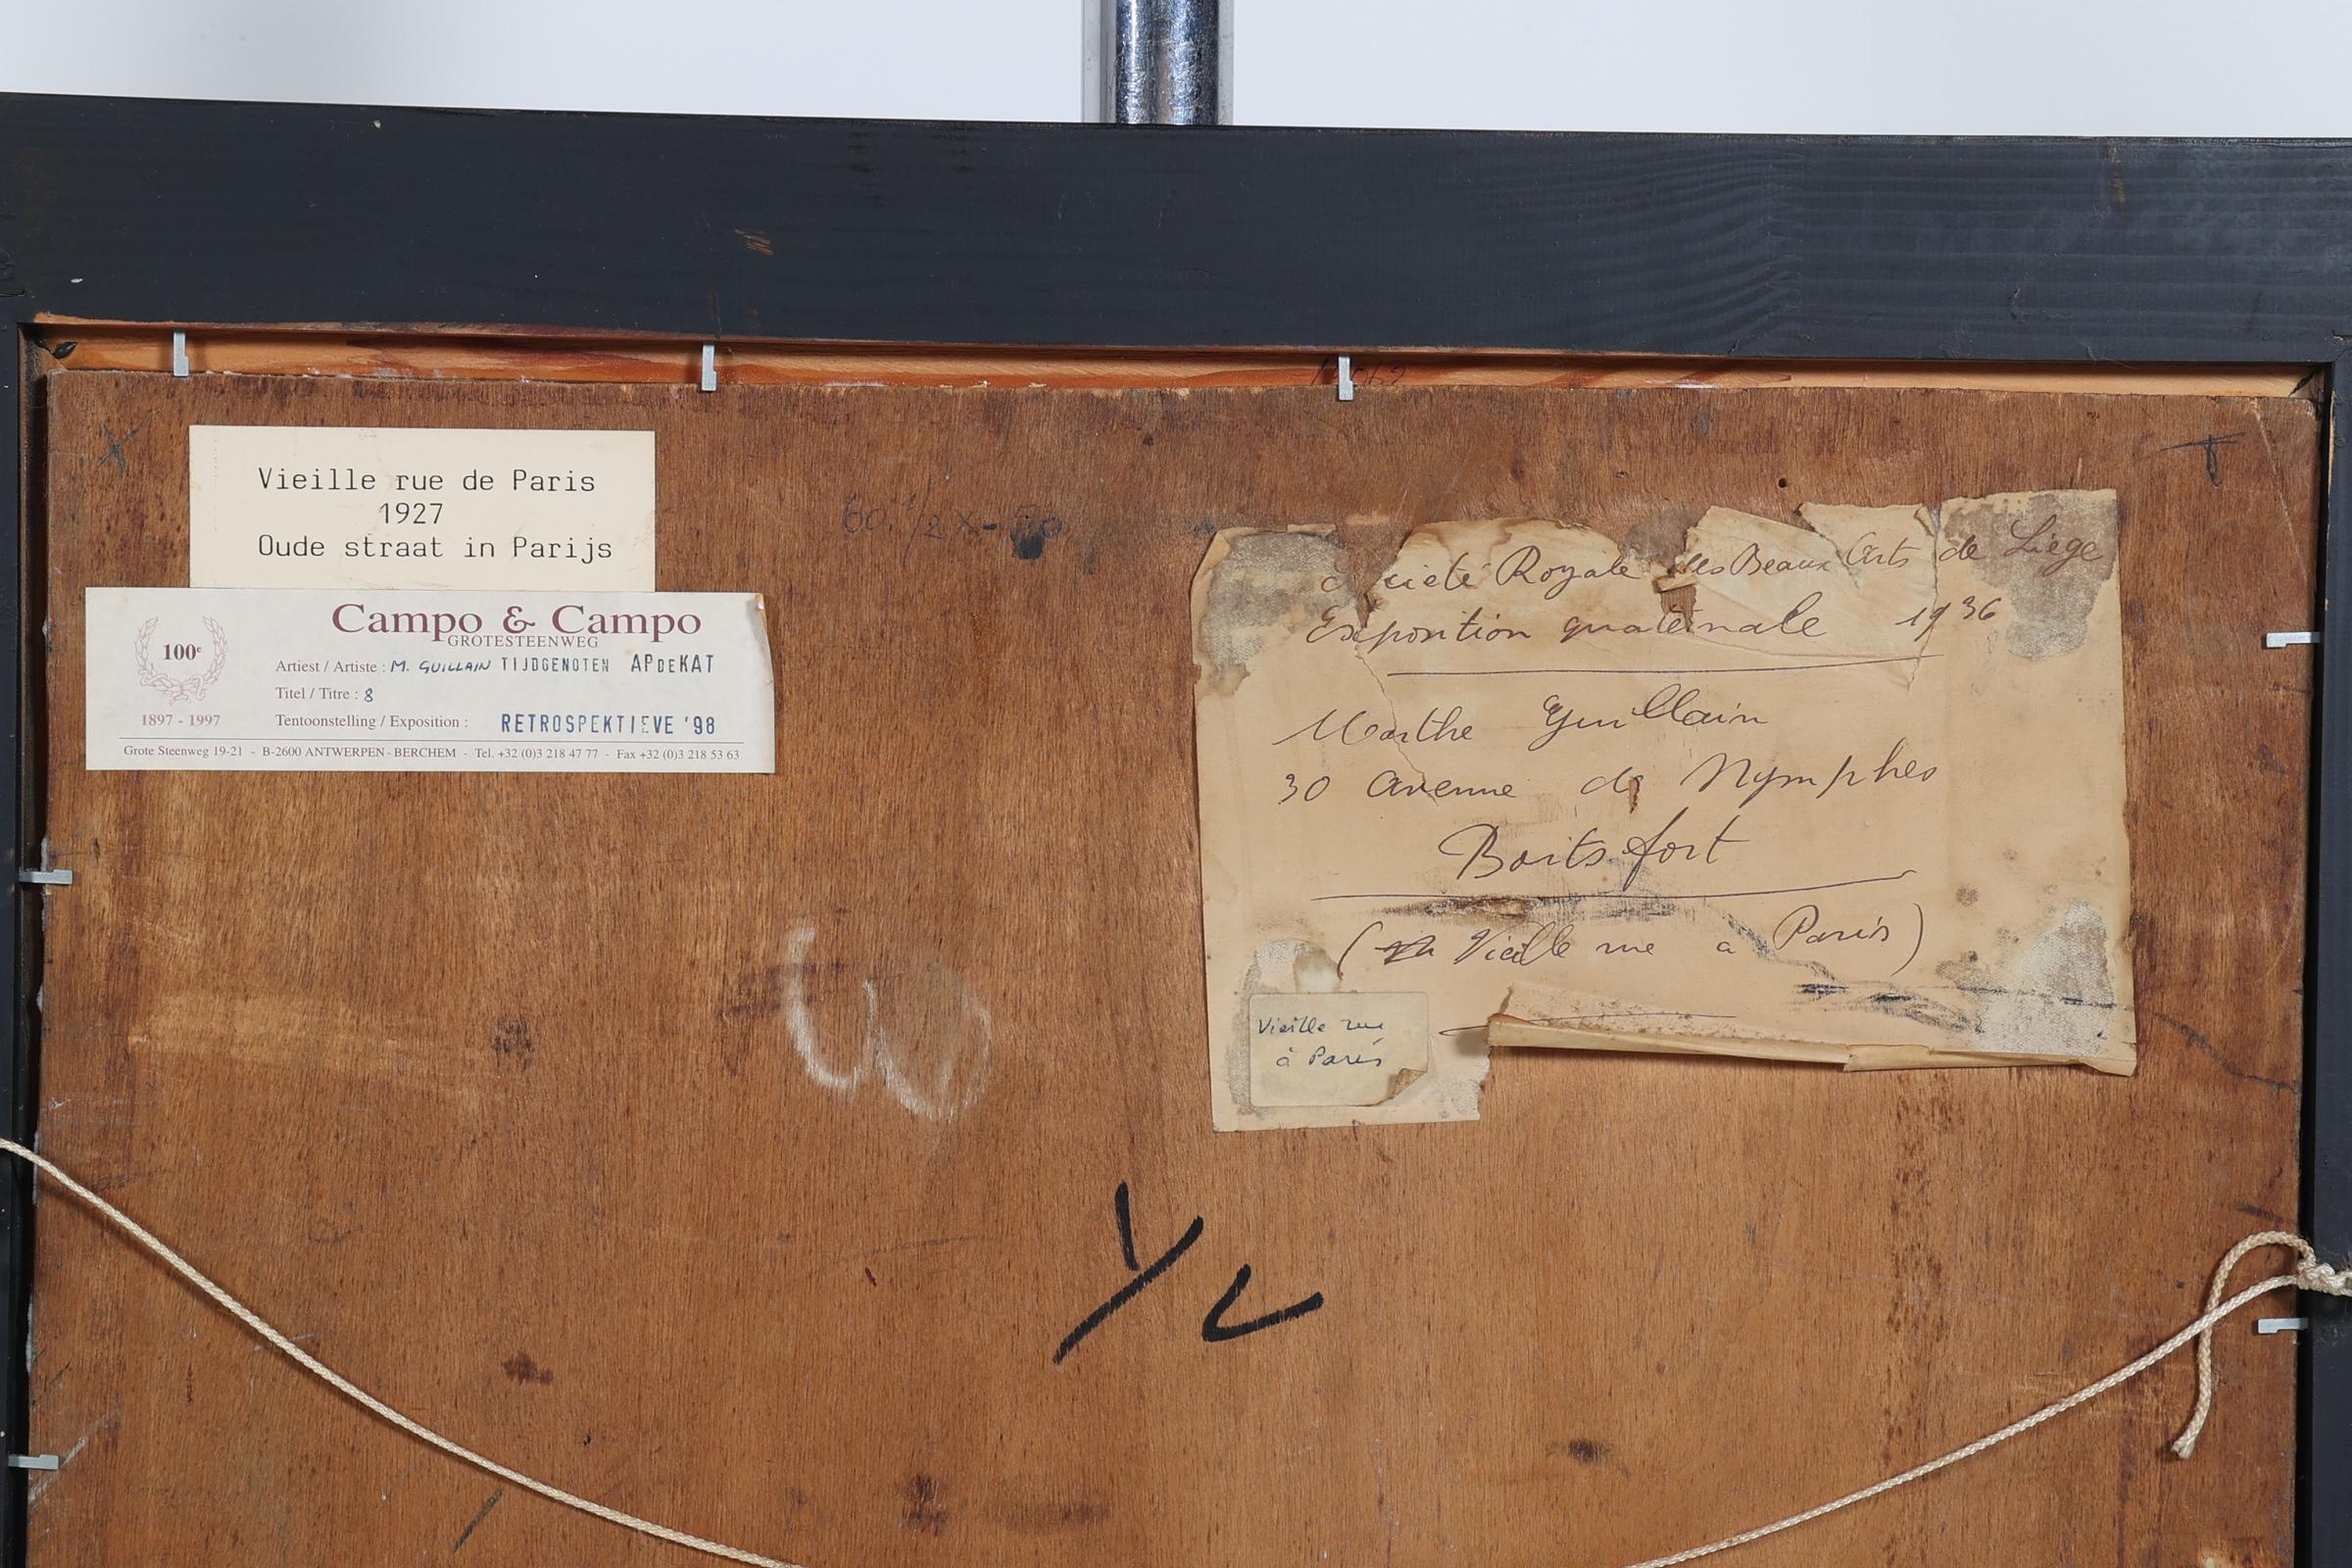 Vieille rue de Paris
1927
Oude straat in Parijs
Campo & Campo
GROTESTEENWEG
100e
1897 - 1997
Artiest / Artiste : M. GUILLAIN TIJDGENOTEN AP DE KAT
Titel / Titre : 8
Tentoonstelling / Exposition : RETROSPEKTIEVE '98
Grote Steenweg 19-21 - B-2600 ANTWERPEN - BERCHEM - Tel. +32 (0)3 218 47 77 - Fax +32 (0)3 218 53 63
60. 1/2 x
Société Royale des Beaux Arts de Liège
Exposition quaternale 1936
Marthe Guillain
30 avenue de Nymphes
Boitsfort
( Vieille rue a Paris)
Vieille rue
à Paris